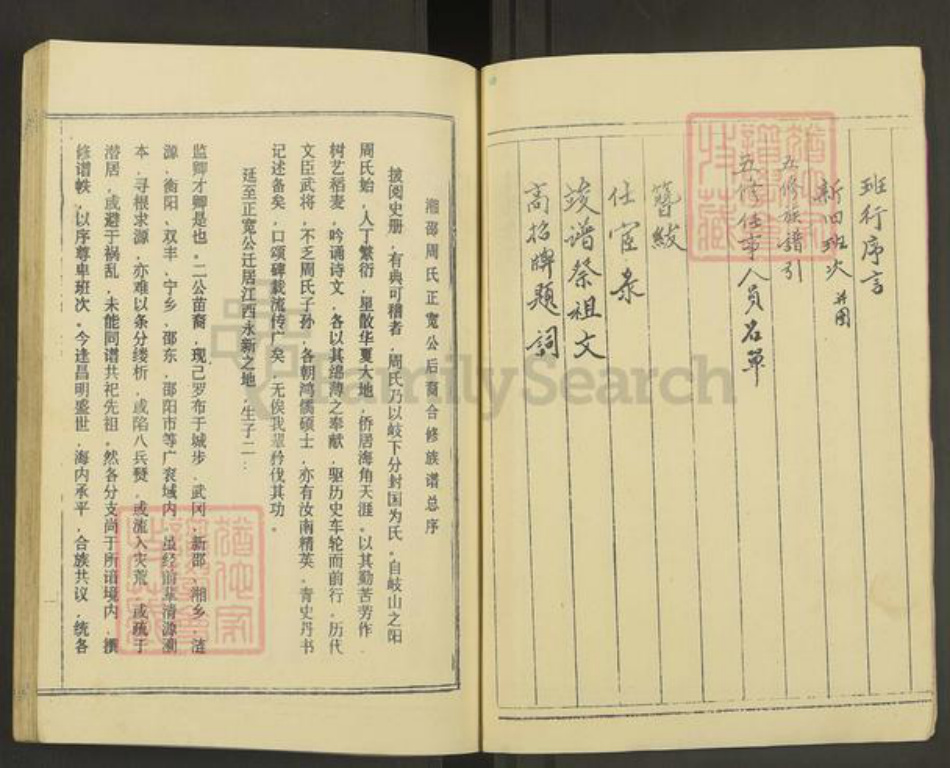 班行序言
新旧班次 并图
五修族谱引
五修任事人员名单
簪紱
仕宦录
竣谱祭祖文
高招牌题詞
湘邵周氏正宽公后裔合修族谱总序
披阅史册，有典可稽者，周氏乃以岐下分封国为氏。自岐山之阳
周氏始，人丁繁衍，星散华夏大地，侨居海角天涯。以其勤苦劳作，
树艺稻麦，吟诵诗文，各以其绵薄之奉献，驱历史车轮而前行。历代
文臣武将，不乏周氏子孙，各朝鸿儒硕士，亦有汝南精英。青史丹书
记述备矣，口颂碑载流传广矣，无俟我辈矜伐其功。
廷至正宽公迁居江西永新之地，生子二：
监卿才卿是也。二公苗裔，现己罗布于城步、武冈、新邵、湘乡、涟
源、衡阳、双丰、宁乡、邵东、邵阳市等广袤域内。虽经前辈清源溯
本，寻根求源，亦难以条分缕析，或陷八兵燹，或流入灾荒，或疏于
潜居，或避于祸乱，未能同谱共祀先祖。然各分支尚于所谙境内，撰
修谱帙，以序尊卑班次。今逢昌明盛世，海内承平，合族共议，统各
FamilySearch